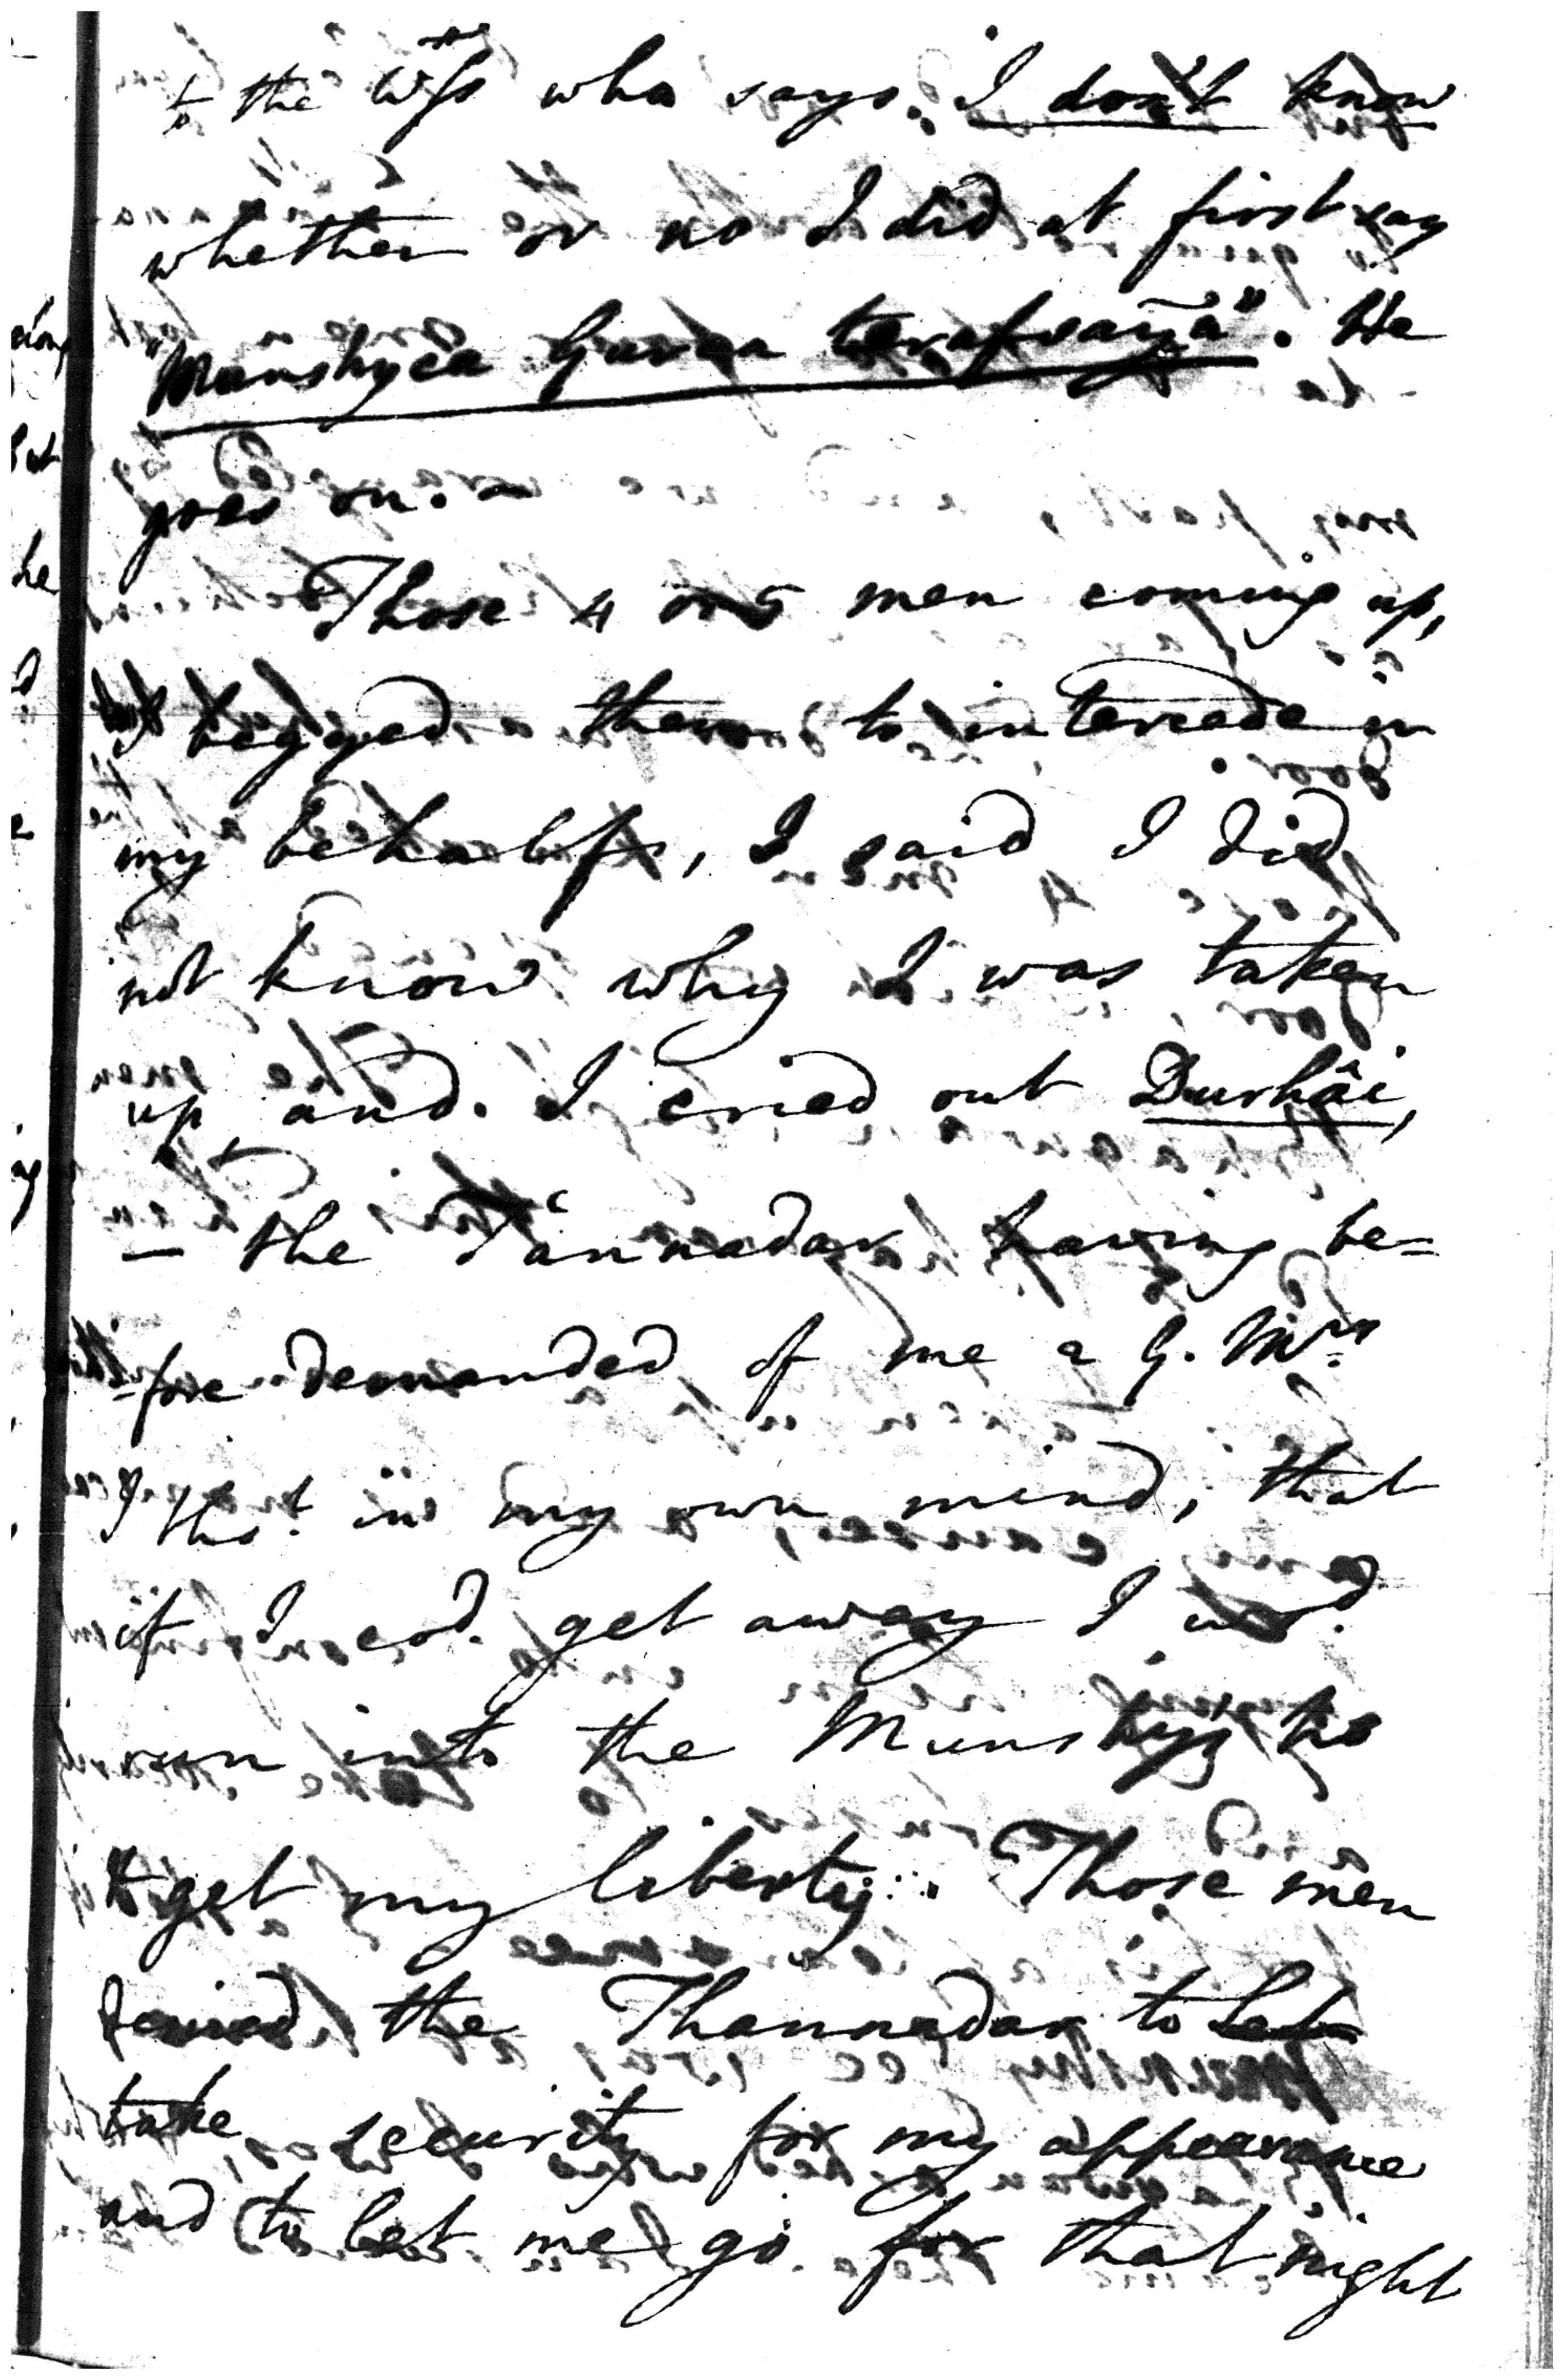 to the Wss who says. I don't know
whether or no I did at first say
"Munshyca Gurer". He
goes on. -
Those 4 or 5 men coming up,
I begged them to intercede in
my behalf, I said I did
not know why I was taken
up and. I cried out Durhâi,
- the Tannadar having be=
=fore demanded of me 2 G. Mrs
I thot. in my own mind, that
if I cod. get away I wod.
run into the Munshy's
get my liberty. Those men
the Thannadar to let
take security for my appearance
and to let me go for that night